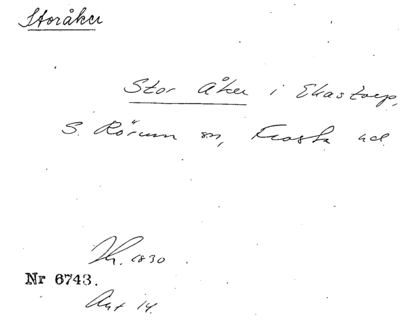 Storåker
Stor åker i Ekastorp,
S. Rörum sn, Frosta hd.
1830
Nr 6743.
Akt 14.